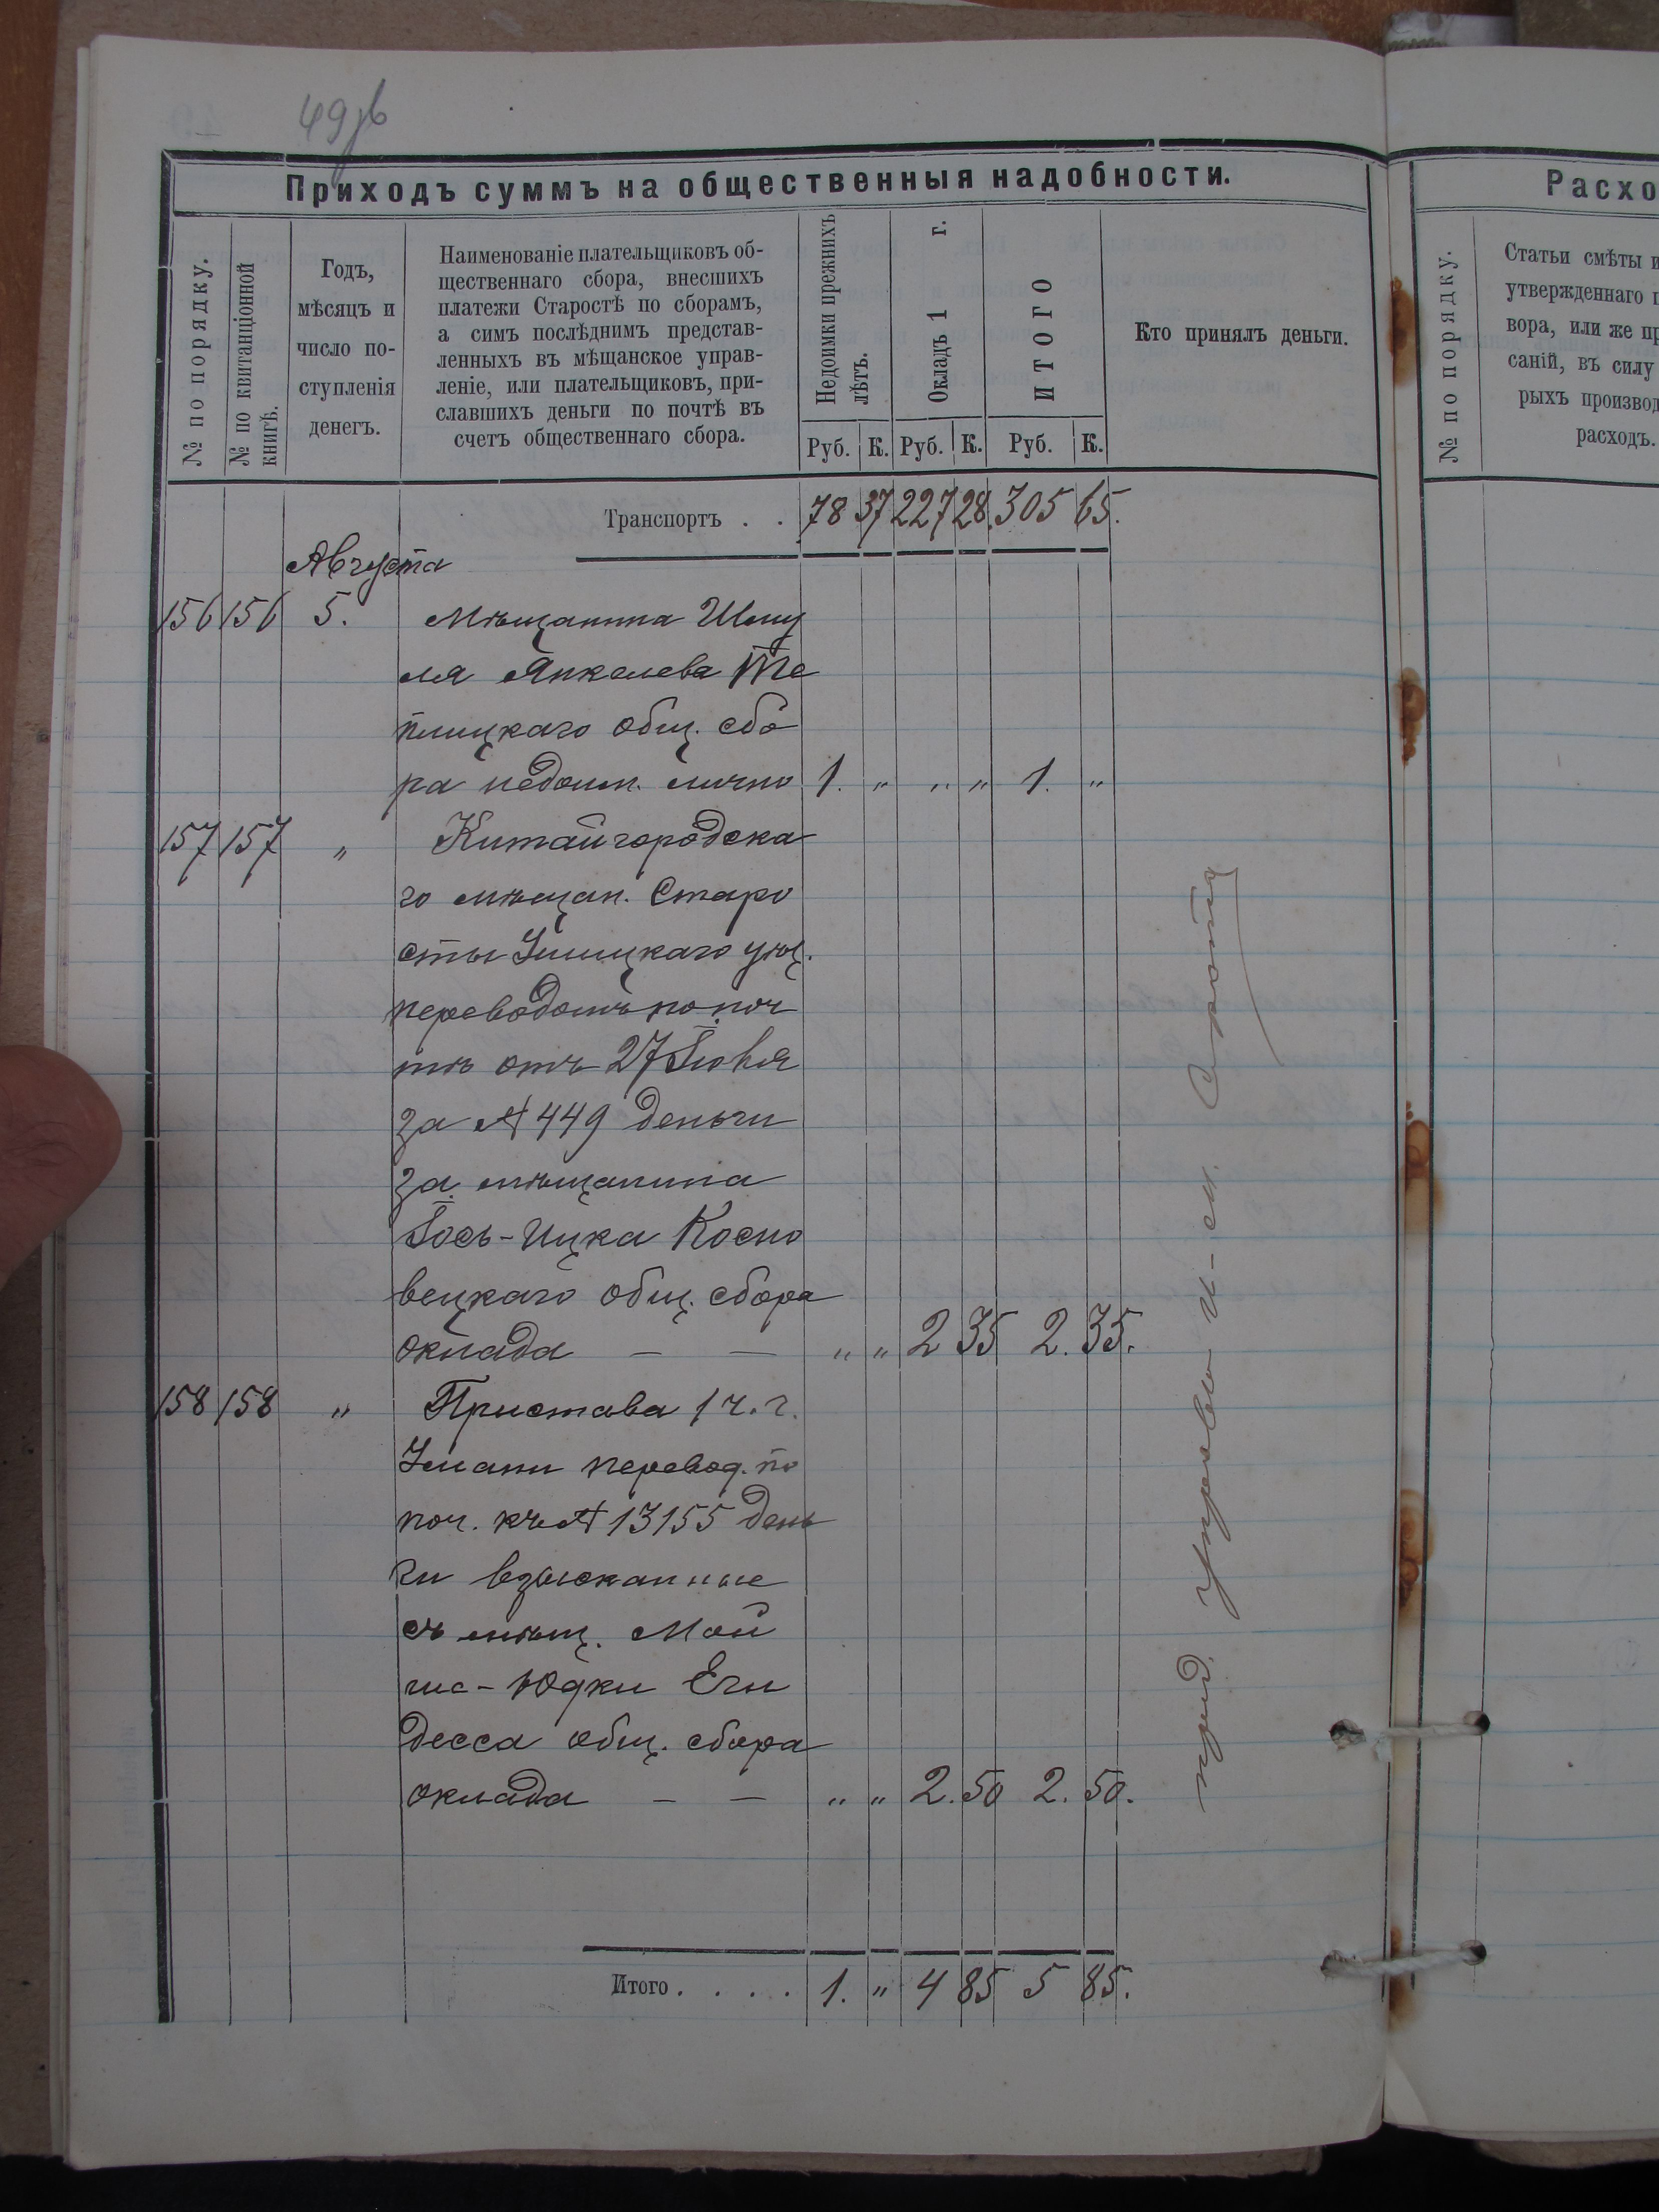 49зв
Приходъ суммъ на общественныя надобности.
№ по порядку.
№ по квитанціонной
книгѣ.
Годъ,
мѣсяцъ и
число по-
ступленія
денегъ.
Наименованіе плательщиковъ об-
щественнаго сбора, внесшихъ
платежи Старостѣ по сборамъ,
а симъ послѣднимъ представ-
ленныхъ въ мѣщанское управ-
леніе, или плательщиковъ, при-
славшихъ деньги по почтѣ въ
счетъ общественнаго сбора.
Недоимки прежнихъ
лѣтъ.
Окладъ 1 г.
ИТОГО
Кто принялъ деньги.
Руб. К. Руб. К. Руб. К.
Транспортъ . . 78 37 227 28 305 65.
Августа
156 156 5. Мѣщанина Шму
ля Янкелева Те
плицкаго общ. сбо
ра недоим. лично 1. " " " 1. "
157 157 " Китайгородска
го мѣщан. Старо
сты Ушицкаго уѣз.
переводомъ по поч
тѣ отъ 27 Іюля
за № 449 деньги
за мѣщанина
Іось-Ицка Косно
вецкаго общ. сбора
оклада — — " " 2 35 2. 35.
158 158 " Пристава 1 ч. г.
Умани перевод. по
поч. къ № 13155 день
ги взысканные
съ мѣщ. Мой
ше-Юдки Еги
десса общ. сбора
оклада — — " " 2. 50 2. 50.
Итого . . . . 1. " 4 85 5 85.
Расхо
№ по порядку.
Статьи смѣты и
утвержденнаго п
вора, или же пр
саній, въ силу
рыхъ производ
расходъ.